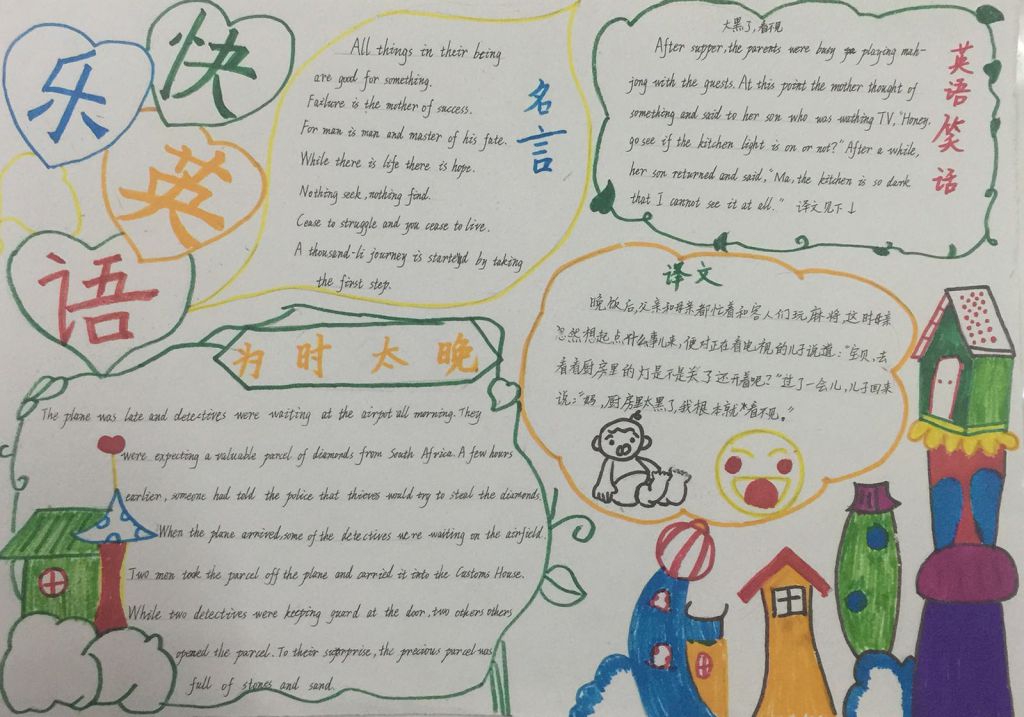 快
乐
英
语
All things in their being
are good for something.
Failure is the mother of success.
For man is man and master of his fate.
While there is life there is hope.
Nothing seek, nothing find.
Cease to struggle and you cease to live.
A thousand-li journey is started by taking
the first step.
名言
大黑了,看不见
After supper, the parents were busy playing mah-
jong with the guests. At this point the mother thought of
something and said to her son who was wathing TV, "Honey,
go see if the kitchen light is on or not?" After a while,
her son returned and said, "Ma, the kitchen is so dark
that I cannot see it at all." 译文见下↓
英语笑话
译文
晚饭后,父亲和母亲都忙着和客人们玩麻将,这时母亲
忽然想起点什么事儿来,便对正在看电视的儿子说道:"宝贝,去
看看厨房里的灯是不是关了还开着呢?"过了一会儿,儿子回来
说:"妈,厨房里太黑了,我根本就看不见。"
为时太晚
The plane was late and detectives were waiting at the airpot all morning. They
were expecting a valuable parcel of diamonds from South Africa. A few hours
earlier, someone had told the police that thieves would try to steal the diamonds.
When the plane arrived, some of the detectives were waiting on the airfield.
Two men took the parcel off the plane and carried it into the Customs House.
While two detectives were keeping guard at the door, two others others
opened the parcel. To their surprise, the precious parcel was
full of stones and sand.